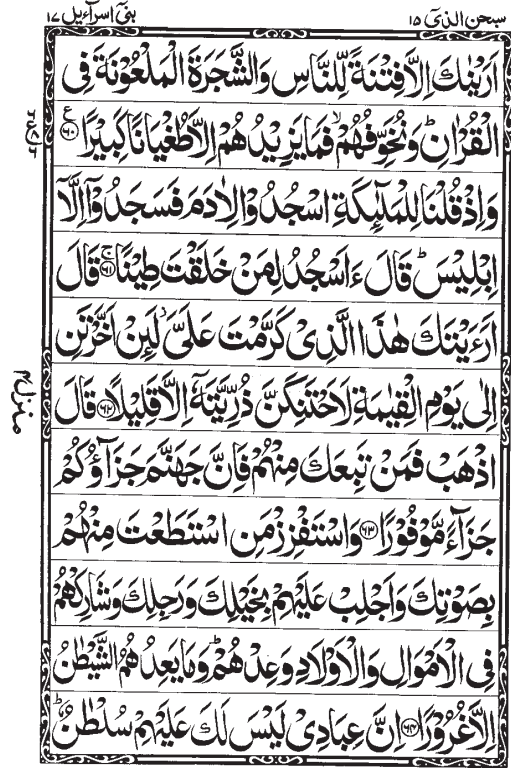 سبحن الذی ١٥
بنی اسرآءیل ١٧
اَرَیْنٰكَ اِلَّا فِتْنَةً لِّلنَّاسِ وَالشَّجَرَةَ الْمَلْعُوْنَةَ فِی
الْقُرْاٰنِ ؕ وَنُخَوِّفُهُمْ ۙ فَمَا یَزِیْدُهُمْ اِلَّا طُغْیَانًا كَبِیْرًا ﴿٦٠﴾ ع
وَاِذْ قُلْنَا لِلْمَلٰٓئِكَةِ اسْجُدُوْا لِاٰدَمَ فَسَجَدُوْۤا اِلَّاۤ
اِبْلِیْسَ ؕ قَالَ ءَاَسْجُدُ لِمَنْ خَلَقْتَ طِیْنًا ﴿٦١﴾ ۚ قَالَ
اَرَءَیْتَكَ هٰذَا الَّذِیْ كَرَّمْتَ عَلَیَّ ؗ لَئِنْ اَخَّرْتَنِ
اِلٰی یَوْمِ الْقِیٰمَةِ لَاَحْتَنِكَنَّ ذُرِّیَّتَهٗۤ اِلَّا قَلِیْلًا ﴿٦٢﴾ قَالَ
اذْهَبْ فَمَنْ تَبِعَكَ مِنْهُمْ فَاِنَّ جَهَنَّمَ جَزَآؤُكُمْ
جَزَآءً مَّوْفُوْرًا ﴿٦٣﴾ وَاسْتَفْزِزْ مَنِ اسْتَطَعْتَ مِنْهُمْ
بِصَوْتِكَ وَاَجْلِبْ عَلَیْهِمْ بِخَیْلِكَ وَرَجِلِكَ وَشَارِكْهُمْ
فِی الْاَمْوَالِ وَالْاَوْلَادِ وَعِدْهُمْ ؕ وَمَا یَعِدُهُمُ الشَّیْطٰنُ
اِلَّا غُرُوْرًا ﴿٦٤﴾ اِنَّ عِبَادِیْ لَیْسَ لَكَ عَلَیْهِمْ سُلْطٰنٌ ؕ
منزل ٤